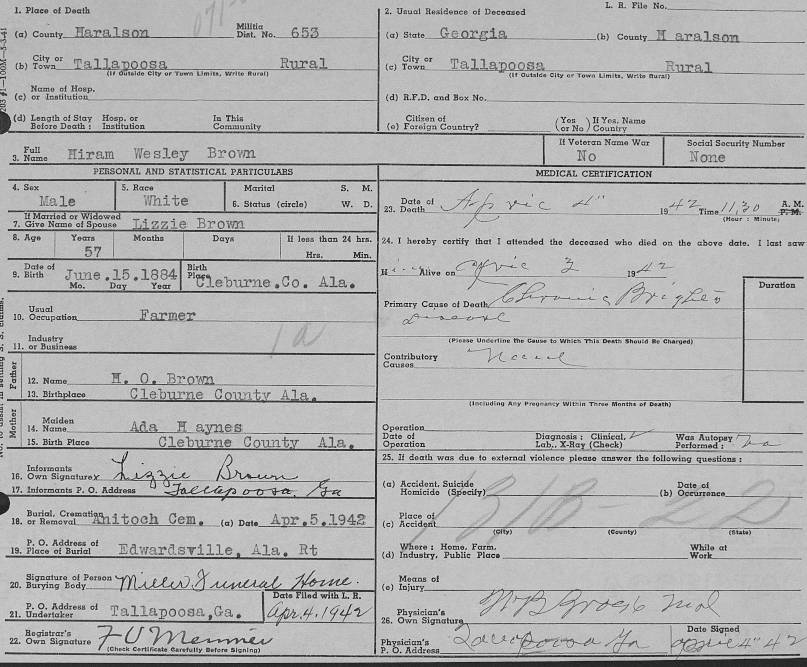 1. Place of Death
(a) County Haralson Militia Dist. No. 653
(b) City or Town Tallapoosa Rural
(If Outside City or Town Limits, Write Rural)
(c) Name of Hosp. or Institution
(d) Length of Stay Before Death: Hosp. or Institution In This Community
2. Usual Residence of Deceased
L. R. File No.
(a) State Georgia (b) County H aralson
(c) City or Town Tallapoosa Rural
(If Outside City or Town Limits, Write Rural)
(d) R.F.D. and Box No.
(e) Citizen of Foreign Country? (Yes or No) If Yes, Name Country
3. Full Name Hiram Wesley Brown
If Veteran Name War No
Social Security Number None
PERSONAL AND STATISTICAL PARTICULARS
4. Sex Male
5. Race White
6. Marital Status (circle) S. M. W. D.
7. If Married or Widowed Give Name of Spouse Lizzie Brown
8. Age Years 57 Months Days If less than 24 hrs. Hrs. Min.
9. Date of Birth June.15.1884
Mo. Day Year
Birth Place Cleburne.Co. Ala.
10. Usual Occupation Farmer
11. Industry or Business
1a
Father
12. Name H. O. Brown
13. Birthplace Cleburne County Ala.
Mother
14. Maiden Name Ada H aynes
15. Birth Place Cleburne County Ala.
16. Informants Own Signature x Lizzie Brown
17. Informants P. O. Address Tallapoosa, Ga
18. Burial, Cremation or Removal Anitoch Cem. (a) Date Apr.5.1942
19. P. O. Address of Place of Burial Edwardsville, Ala. Rt
20. Signature of Person Burying Body Miller Funeral Home.
21. P. O. Address of Undertaker Tallapoosa,Ga.
Date Filed with L. R. Apr.4.1942
22. Registrar's Own Signature
(Check Certificate Carefully Before Signing)
MEDICAL CERTIFICATION
23. Date of Death 4" 1942 Time 11,30 A.M. P.M.
(Hour: Minute)
24. I hereby certify that I attended the deceased who died on the above date. I last saw
H Alive on 1942
Duration
Primary Cause of Death Chronic Brights
(Please Underline the Cause to Which This Death Should Be Charged)
Contributory Causes
(Including Any Pregnancy Within Three Months of Death)
Operation
Date of Operation Diagnosis: Clinical, Lab., X-Ray (Check) Was Autopsy Performed: no
25. If death was due to external violence please answer the following questions:
(a) Accident, Suicide Homicide (Specify) (b) Date of Occurrence
(c) Place of Accident
(City) (County) (State)
(d) Where: Home, Farm, Industry, Public Place While at Work
(e) Means of Injury
26. Physician's Own Signature
Physician's P. O. Address Ga
Date Signed 4" 42